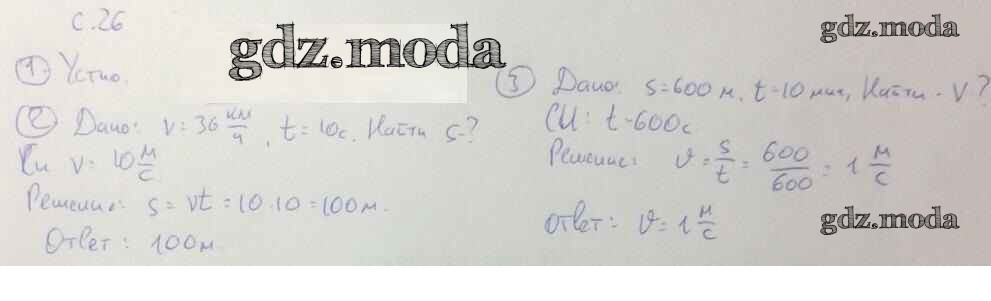 с. 26
gdz.moda
① Устно.
② Дано: v = 36 км/ч, t = 10с. Найти s-?
Си v = 10 м/с
Решение: s = vt = 10 · 10 = 100м.
Ответ: 100м.
gdz.moda
③ Дано: s = 600 м, t = 10 мин, Найти - v?
СИ: t - 600с
Решение: v = s/t = 600/600 = 1 м/с
ответ: v = 1 м/с
gdz.moda